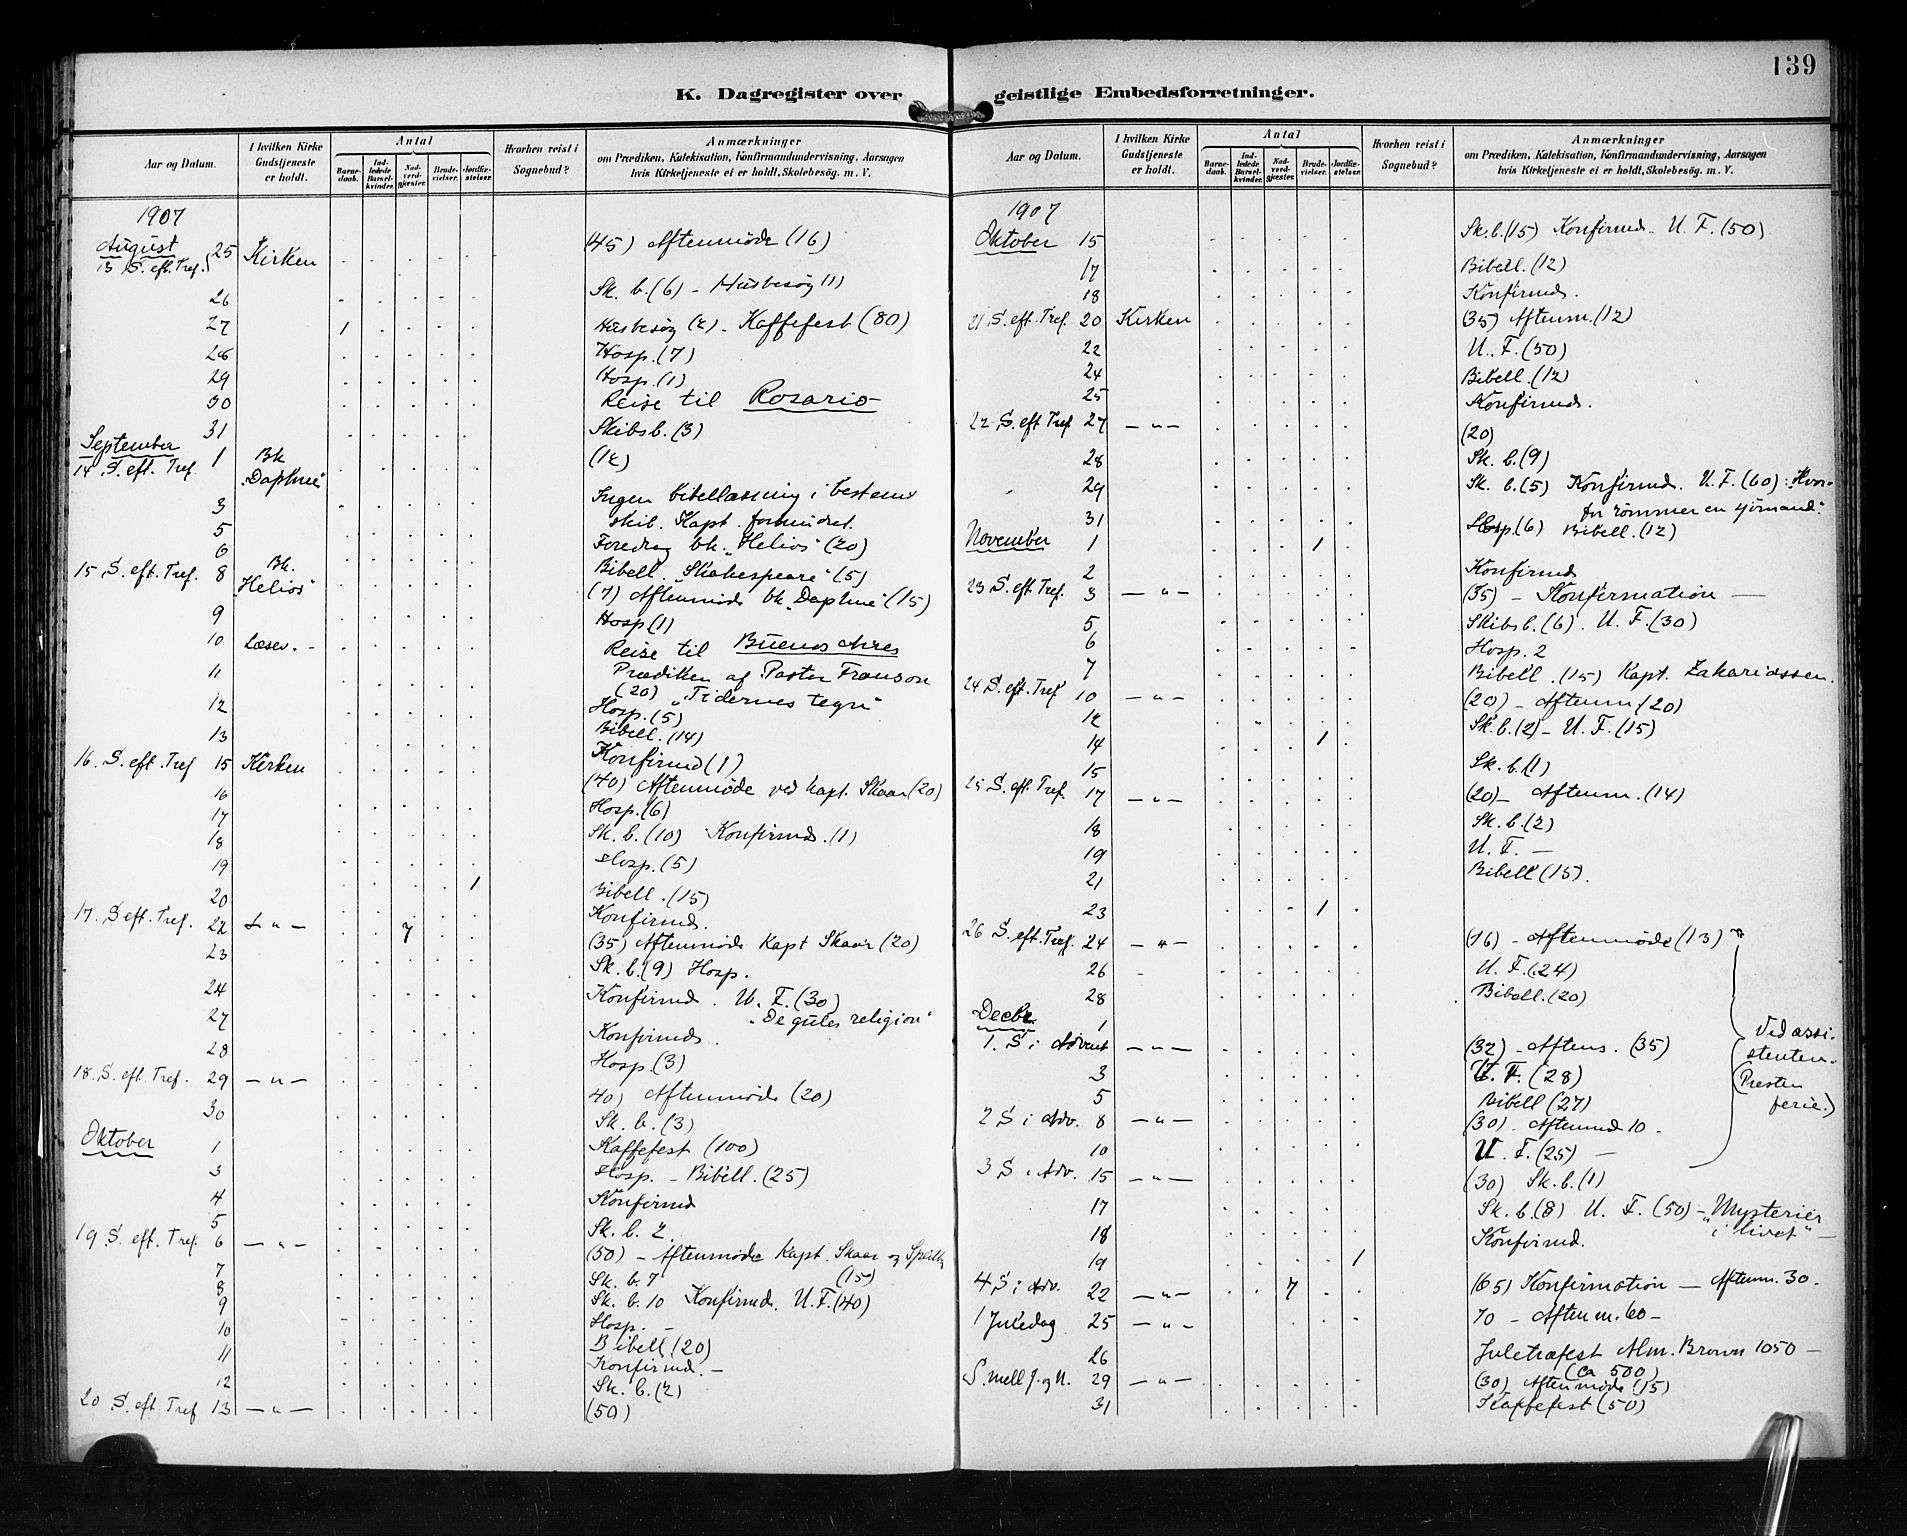 139
K. Dagregister over geistlige Embedsforretninger.
Aar og Datum. I hvilken Kirke Gudstjeneste er holdt. Antal Barnedaab. Indledede Barselkvinder. Nadverdgjæster. Brudevielser. Jordfæstelser. Hvorhen reist i Sognebud? Anmærkninger om Prædiken, Katekisation, Konfirmandundervisning, Aarsagen hvis Kirketjeneste ei er holdt, Skolebesøg. m. V.
1907
August
13 S. eft. Tref. 25 Kirken (45) Aftenmøde (16)
26 Sk. b. (6) - Husbesøg (1)
27 1 Husbesøg (2) - Kaffefest (80)
28 Hosp. (7)
29 Hosp. (1)
30 Reise til Rosario
31 Skibsb. (3)
September
14 S. eft. Tref. 1 Bk "Daphne" (12)
3 Ingen bibellæsning i bestemt
skib. Kapt. formindret.
5 Foredrag bk. "Helios" (20)
6 Bibell. "Shakespeare" (5)
15 S. eft. Tref. 8 Bk. "Helios" (7) Aftenmøde bk. "Daphne" (15)
9 Hosp (1)
10 Læsev. - Reise til Buenos Aires
11 Prædiken af Pastor Franson
(20) "Tidernes tegn"
12 Hosp. (5)
13 Bibell. (14)
Konfirmd (1)
16. S. eft. Tref 15 Kirken (40) Aftenmøde ved Kapt. Skaar (20)
16 Hosp. (6)
17 Sk. b. (10) Konfirmd. (1)
18 Hosp. (5)
19 1 Bibell. (15)
20 Konfirmd.
17. S eft. Tref. 22 - " - 7 (35) Aftenmøde Kapt Skaar (20)
23 Sk. b. (9) Hosp.
24 Konfirmd. U. F. (30)
"De gules religion"
27 Konfirmd.
28 Hosp. (3)
18. S. eft. Tref. 29 - " - 40) Aftenmøde (20)
30 Sk. b. (3)
Oktober 1 Kaffefest (100)
3 Hosp. - Bibell. (25)
4 Konfirmd
5 Sk. b. 2
19 S. eft. Tref. 6 - " - (50) - Aftenmøde Kapt. Skaar og
(15)
7 Sk. b. 7
8 Sk. b. 10 Konfirmd. U. F. (40)
9 Hosp. -
10 Bibell (20)
11 Konfirmd. -
12 Sk. b. (2)
20 S. eft. Tref 13 - " - (50)
Aar og Datum. I hvilken Kirke Gudstjeneste er holdt. Antal Barnedaab. Indledede Barselkvinder. Nadverdgjæster. Brudevielser. Jordfæstelser. Hvorhen reist i Sognebud? Anmærkninger om Prædiken, Katekisation, Konfirmandundervisning, Aarsagen hvis Kirketjeneste ei er holdt, Skolebesøg. m. V.
1907
Oktober 15 Sk. b. (15) Konfirmd. U. F. (50)
17 Bibell. (12)
18 Konfirmd.
21 S. eft. Tref. 20 Kirken (35) Aftenm. (12)
22 U. F. (50)
24 Bibell. (12)
25 Konfirmd.
22 S. eft. Tref 27 - " - (20)
28 Sk. b. (9)
29 Sk. b. (5) Konfirmd. U. F. (60): "Hvor-
for rømmer en sjömand".
31 Hosp. (6) Bibell. (12)
November 1 1
2 Konfirmd
23 S. eft. Tref. 3 - " - (35) - Konfirmation -
5 Skibsb. (6). U. F. (30)
6 Hosp. 2
7 Bibell. (15) Kapt. Zakariassen.
24 S. eft. Tref 10 - " - (20) - Aftenm (20)
12 Sk. b. (2) - U. F. (15)
14 1
15 Sk. b. (1)
25 S. eft. Tref. 17 - " - (20) - Aftenm. (14)
18 Sk. b. (2)
19 U. F. -
21 Bibell (15).
23 1
26 S. eft. Tref. 24 - " - (16) - Aftenmøde (13)
26 U. F. (24)
28 Bibell. (20)
Decbr. 1
1. S. i Advent - " - (32) - Aftens. (35)
3 U. F. (28)
5 Bibell (27)
2 S i Adv. 8 - " - (30) - Aftenmd 10 -
10 U. F. (25) -
Ved assi-
stenten.
(Presten
ferie.)
3 S i Adv. 15 - " - (30) Sk. b. (1)
17 Sk. b. (8) U. F. (50) - "Mysterier
i livet" -
18 Konfirmd.
19 1
4 S i Adv. 22 - " - 7 (65) Konfirmation - Aftenm. 30.
1 Juledag 25 - " - 70 - Aftenm. 60 -
26 Juletræfest Alm. Brown 1050 -
(ca 500)
S. mell J. og N. 29 - " - (30) Aftenmøde (15)
31 Kaffefest (50)